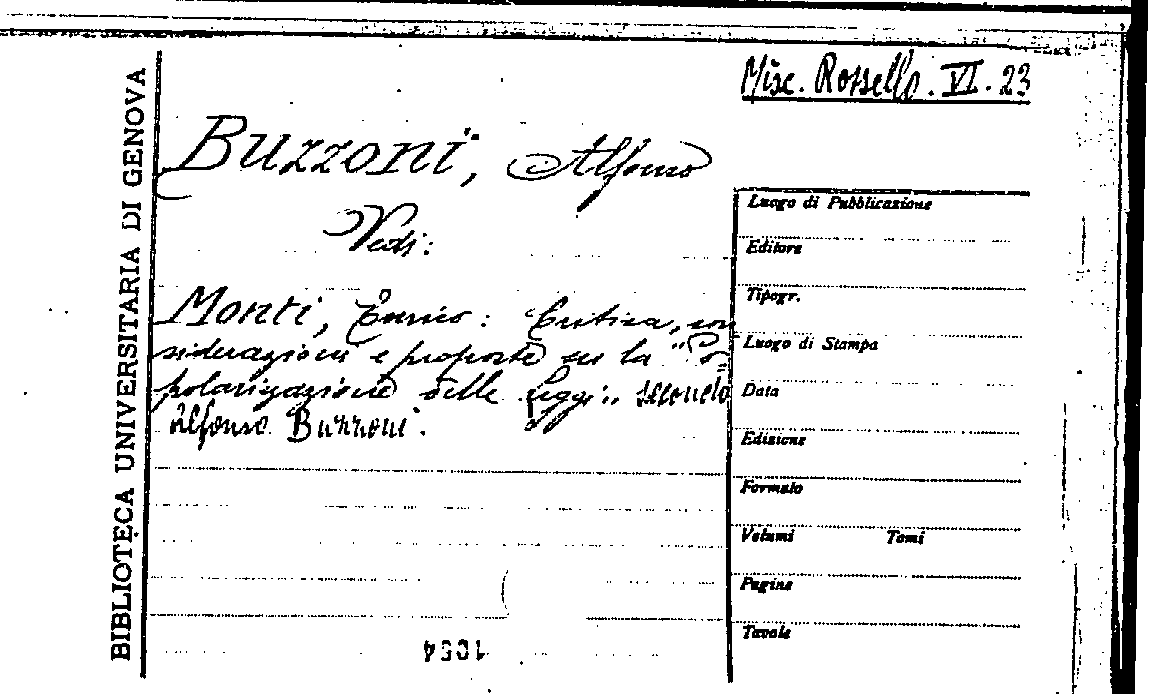 Misc. Rossello. VI. 23
BIBLIOTECA UNIVERSITARIA DI GENOVA
Buzzoni, Alfonso
Vedi:
Monti, Enrico: Critica, con
siderazioni e proposte su la "Po
polarizazione delle Leggi" secondo
Alfonso Buzzoni.
Luogo di Pubblicazione
Editore
Tipogr.
Luogo di Stampa
Data
Edizione
Formato
Volumi Tomi
Pagine
Tavole
1054